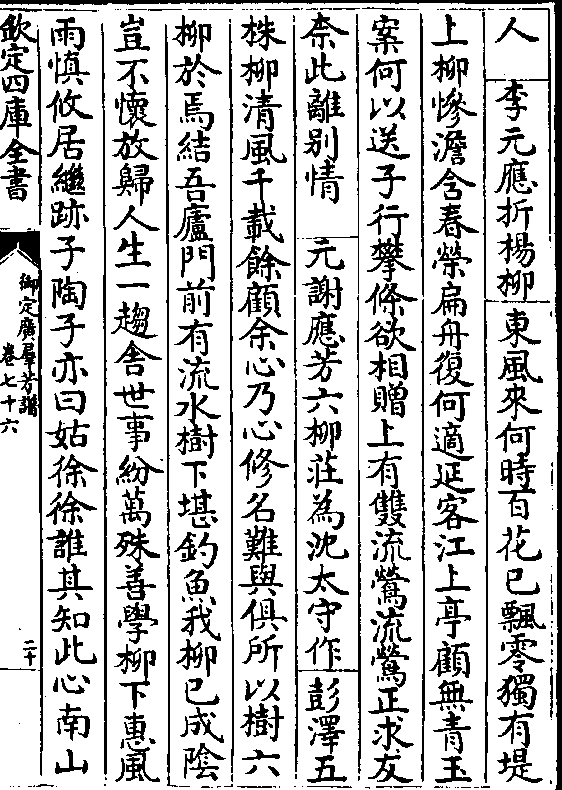 人　李元應折楊柳　東風來何時百花已飄零獨有堤
上柳慘澹含春榮扁舟復何適延客江上亭顧無青玉
案何以送子行攀條欲相贈上有雙流鶯流鶯正求友
柰此離别情　元謝應芳六柳莊為沈太守作　彭澤五
株柳清風千載餘顧余心乃心修名難與俱所以樹六
柳於焉結吾廬門前有流水樹下堪釣魚我柳已成隂
豈不懷放歸人生一趨舎世事紛萬殊善學柳下惠風
雨慎攸居繼跡子陶子亦曰姑徐徐誰其知此心南山
欽定四庫全書
御定廣羣芳譜
卷七十六
二十